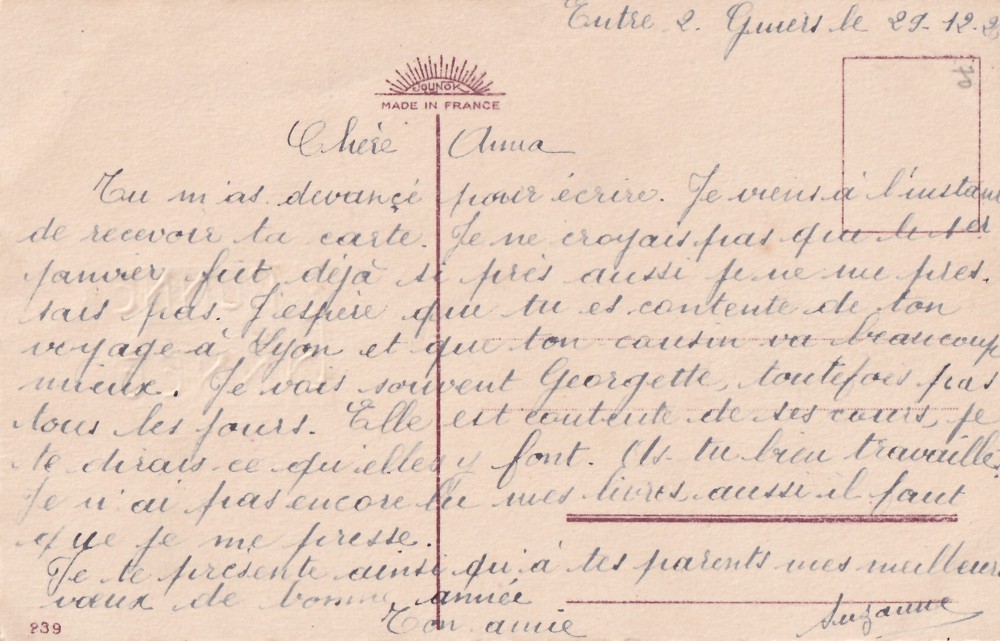 Entre 2. Guiers le 29-12-2
JOUNOK
MADE IN FRANCE
70
Chère Anna
Tu m'as devancé pour écrire. Je viens à l'instant
de recevoir ta carte. Je ne croyais pas que le 1er
janvier fut déjà si près aussi je ne me pres-
sais pas. J'espère que tu es contente de ton
voyage à Lyon et que ton cousin va beaucoup
mieux. Je vois souvent Georgette, toutefois pas
tous les jours. Elle est contente de ses cours, je
te dirais ce qu'elles y font. As tu bien travaillé.
Je n'ai pas encore lu mes livres aussi il faut
que je me presse.
Je te présente ainsi qu'à tes parents mes meilleurs
vœux de bonne année
Ton amie Suzanne
239